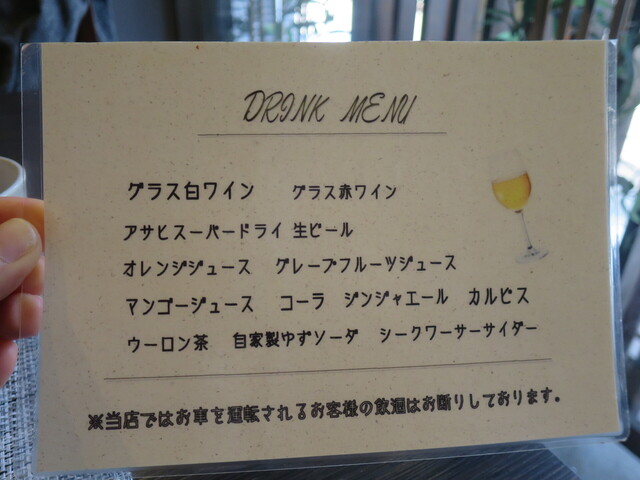 DRINK MENU
グラス白ワイン グラス赤ワイン
アサヒスーパードライ 生ビール
オレンジジュース グレープフルーツジュース
マンゴージュース コーラ ジンジャエール カルピス
ウーロン茶 自家製ゆずソーダ シークワーサーサイダー
※当店ではお車を運転されるお客様の飲酒はお断りしております.